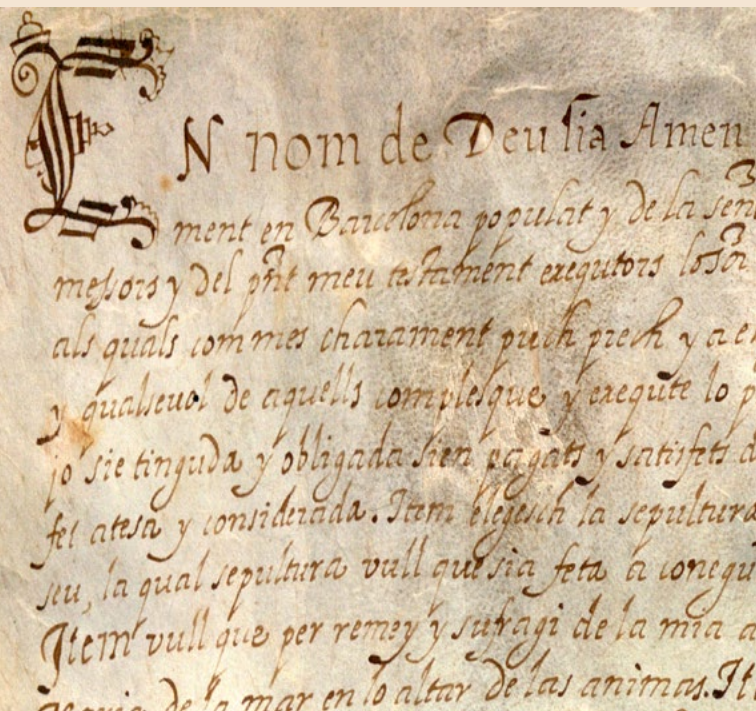 EN nom de Deu sia Amen
ment en Barcelona populat y de la señ
messors y del pñt meu testament exequtors lo Señ
als quals com mes charament puch prech y a e
y qualsevol de aquells complesque y exequte lo p
jo sie tinguda y obligada sien pagats y satisfets
fet atesa y considerada. Item elegesch la sepultura
seu, la qual sepultura vull que sia feta a conegu
Item vull que per remey y sufragi de la mia a
Maria de la mar en lo altar de las animas. It